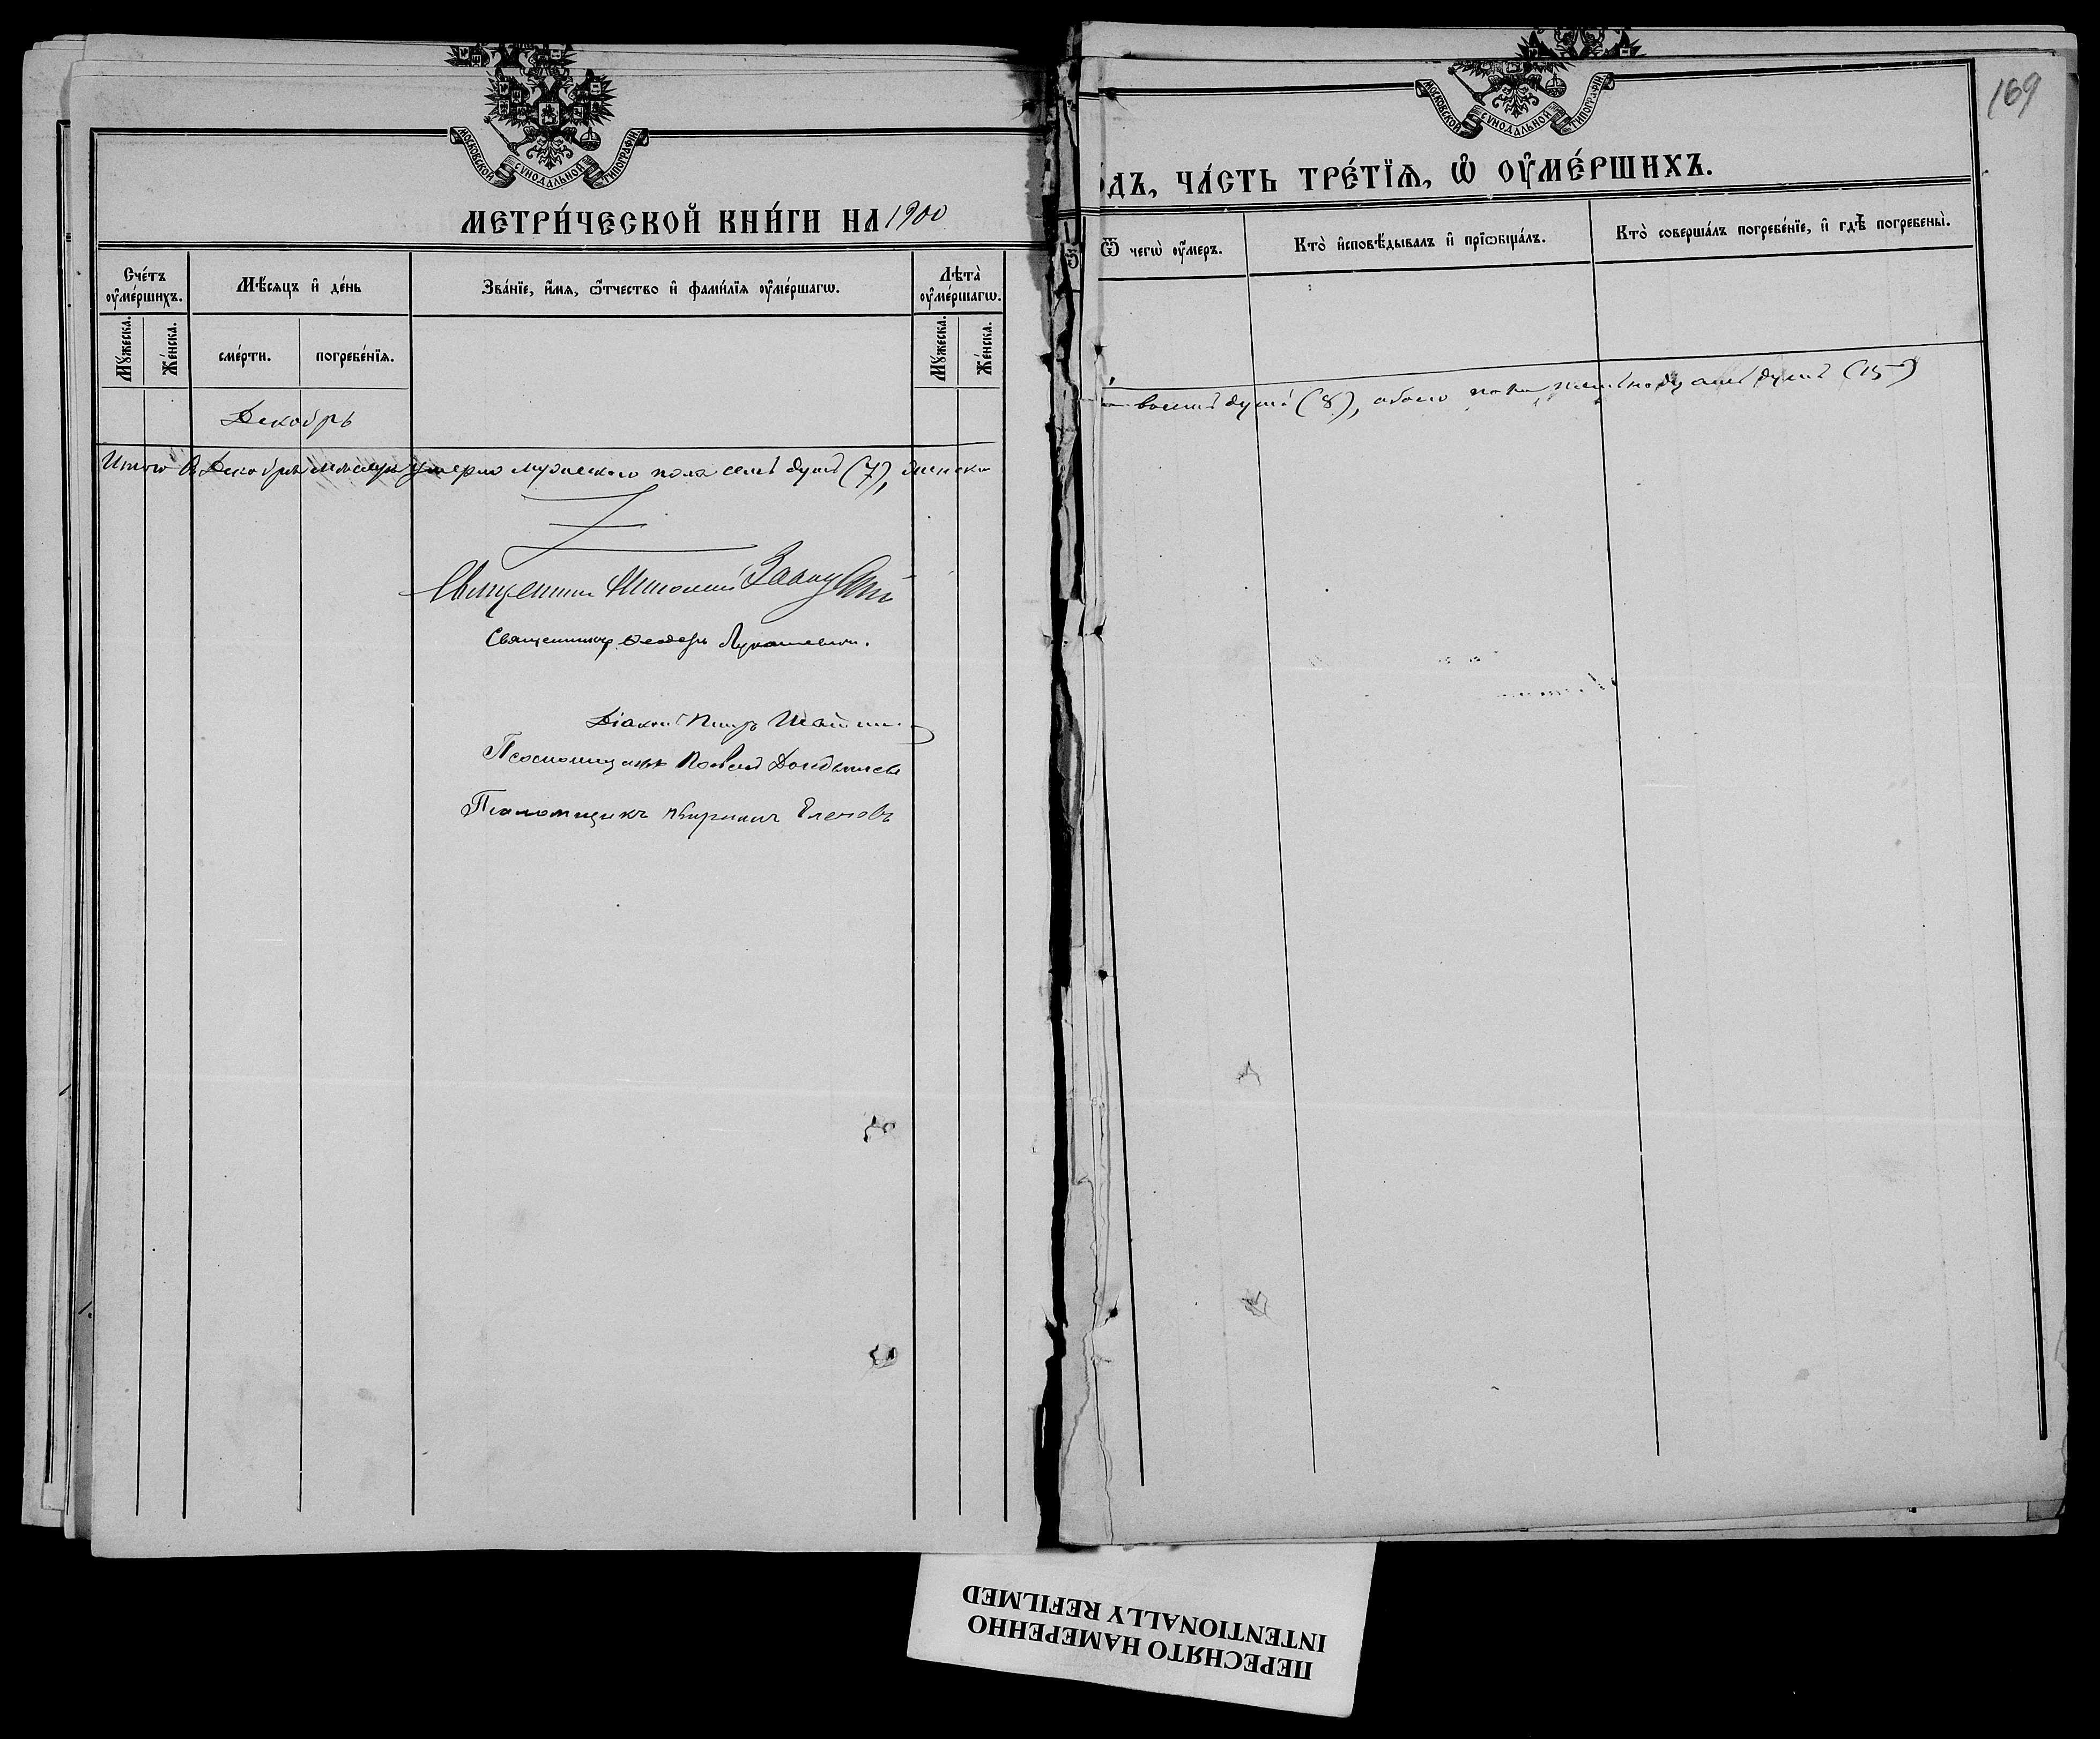 МОСКОВСКОЙ СѴНОДАЛЬНОЙ ТИПОГРАФІИ
МЕТРИ́ЧЕСКОЙ КНИ́ГИ НА 1900
Сче́тъ ᲂу҆ме́ршихъ.
Мѣ́сяцъ и҆ де́нь
Зва́нїе, и҆́мя, ѻ҆́тчество и҆ фами́лїя ᲂу҆ме́ршагѡ.
Лѣта̀ ᲂу҆ме́ршагѡ.
Мꙋ́жеска.
Же́нска.
сме́рти.
погребе́нїя.
Мꙋ́жеска.
Же́нска.
Декабрь
Итого въ Декабрѣ месяцѣ умерло мужескаго пола семь душъ (7), женска
Священникъ Николай
Священникъ Ѳеодоръ Лукашевич.
Діаконъ Петръ
Псаломщикъ Павелъ
Псаломщикъ Кириллъ
169
МОСКОВСКОЙ СѴНОДАЛЬНОЙ ТИПОГРАФІИ
ДЪ, ЧА́СТЬ ТРЕ́ТЇѦ, Ѡ҆ ОУ҆МЕ́РШИХЪ.
Ѿ чегѡ̀ ᲂу҆́меръ.
Кто̀ и҆сповѣ́дывалъ и҆ прїѡбща́лъ.
Кто̀ соверша́лъ погребе́нїе, и҆ гдѣ̀ погребены̀.
восемь душъ (8), обоего пола пятнадцать душъ (15)
ПЕРЕСНЯТО НАМЕРЕННО
INTENTIONALLY REFILMED